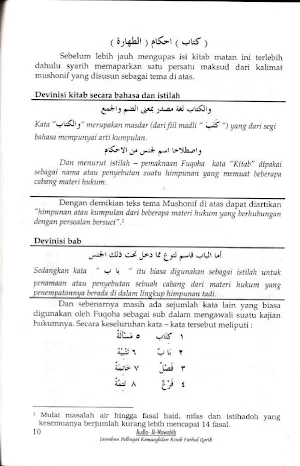 ( كتاب ) احكام ( الطهارة )
Sebelum lebih jauh mengupas isi kitab matan ini terlebih
dahulu syarih memaparkan satu persatu maksud dari kalimat
mushonif yang disusun sebagai tema di atas.
Devinisi kitab secara bahasa dan istilah
والكتاب لغة مصدر بمعنى الضم والجمع
Kata "والكتاب" merupakan masdar (dari fiil madli " كَتَبَ ") yang dari segi
bahasa mempunyai arti kumpulan.
واصطلاحا اسم لجنس من الاحكام
Dan menurut istilah – pemaknaan Fuqoha kata "Kitab" dipakai
sebagai nama atau penyebutan suatu himpunan yang memuat beberapa
cabang materi hukum.
Dengan demikian teks tema Mushonif di atas dapat diartikan
"himpunan atau kumpulan dari beberapa materi hukum yang berhubungan
dengan persoalan bersuci".¹
Devinisi bab
أما الباب فاسم لنوع مما دخل تحت ذلك الجنس
Sedangkan kata " باب " itu biasa digunakan sebagai istilah untuk
penamaan atau penyebutan sebuah cabang dari materi hukum yang
penempatannya berada di dalam lingkup himpunan tadi.
Dan sebenarnya masih ada sejumlah kata lain yang biasa
digunakan oleh Fuqoha sebagai sub dalam mengawali suatu kajian
hukumnya. Secara keseluruhan kata – kata tersebut meliputi :
١ كتاب ٥ مَسْأَلَة
٢ بَابٌ ٦ تَنْبِيْهٌ
٣ فَصْلٌ ٧ خَاتِمَة
٤ فَرْعٌ ٨ تَتِمَّة
¹ Mulai masalah air hingga fasal haid, nifas dan istihadoh yang
kesemuanya berjumlah kurang lebih mencapai 14 fasal.
10
Audio Al-Mawahib
Jawaban Pelbagai Kemungkinan Kitab Fathul Qorib